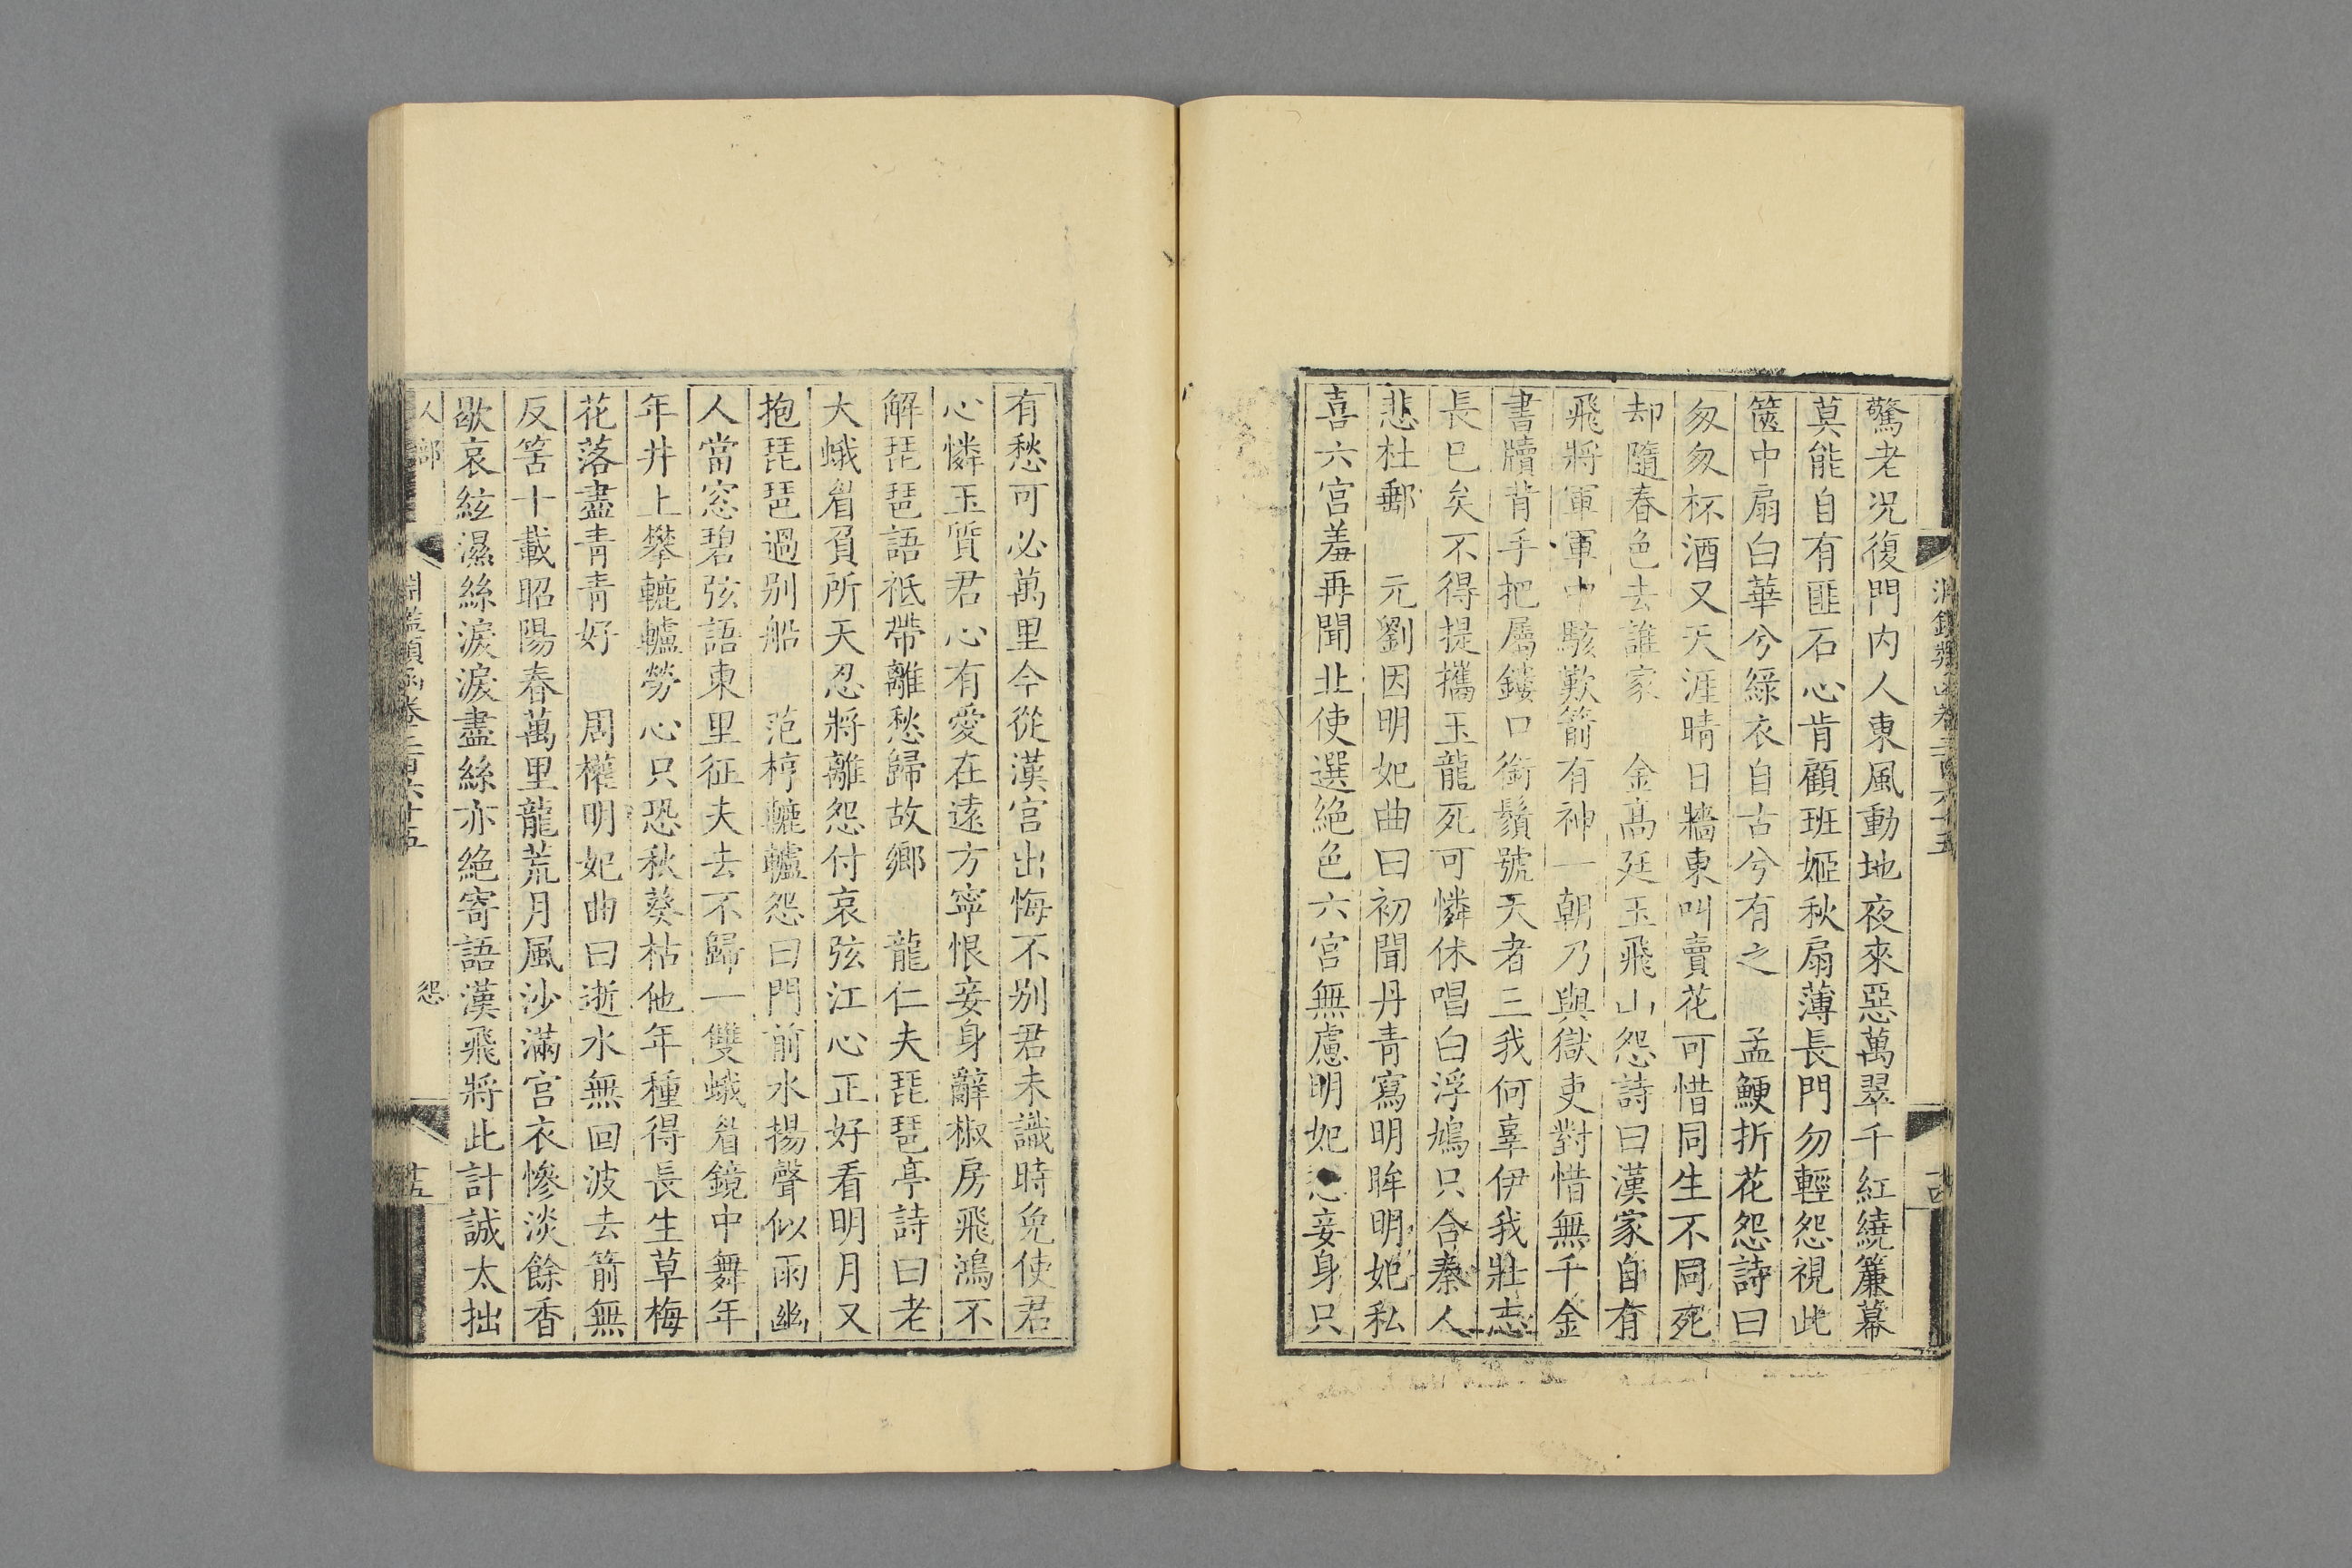 驚老況復門内人東風動地夜來惡萬翠千紅繞簾幕
莫能自有匪石心肯顧班姬秋扇薄長門勿輕怨視此
篋中扇白華兮綠衣自古兮有之 孟鯁折花怨詩曰
匆匆杯酒又天涯晴日牆東叫賣花可惜同生不同死
却隨春色去誰家 金高廷玉飛山怨詩曰漢家自有
飛將軍軍中駭歎箭有神一朝乃與獄吏對惜無千金
書牘背手把屬鏤口銜鬚號天者三我何辜伊我壯志
長已矣不得提攜玉龍死可憐休唱白浮鳩只含秦人
悲杜郵 元劉因明妃曲曰初聞丹青寫明眸明妃私
喜六宮羞再聞北使選絕色六宮無慮明妃妾身只
有愁可必萬里今從漢宮出悔不别君未識時免使君
心憐玉質君心有愛在遠方寧恨妾身辭椒房飛鴻不
解琵琶語祇帶離愁歸故鄉 龍仁夫琵琶亭詩曰老
大蛾眉負所天忍將離怨付哀弦江心正好看明月又
抱琵琶過别船 范梈轆轤怨曰門前水揚聲似雨幽
人當窓碧弦語東里征夫去不歸一雙蛾眉鏡中舞年
年井上攀轆轤勞心只恐秋葵枯他年種得長生草梅
花落盡青青好 周權明妃曲曰逝水無回波去箭無
反筈十載昭陽春萬里龍荒月風沙滿宫衣慘淡餘香
歇哀絃濕絲淚淚盡絲亦絕寄語漢飛將此計誠太拙
人部 淵鑑類函卷三百六十五 怨